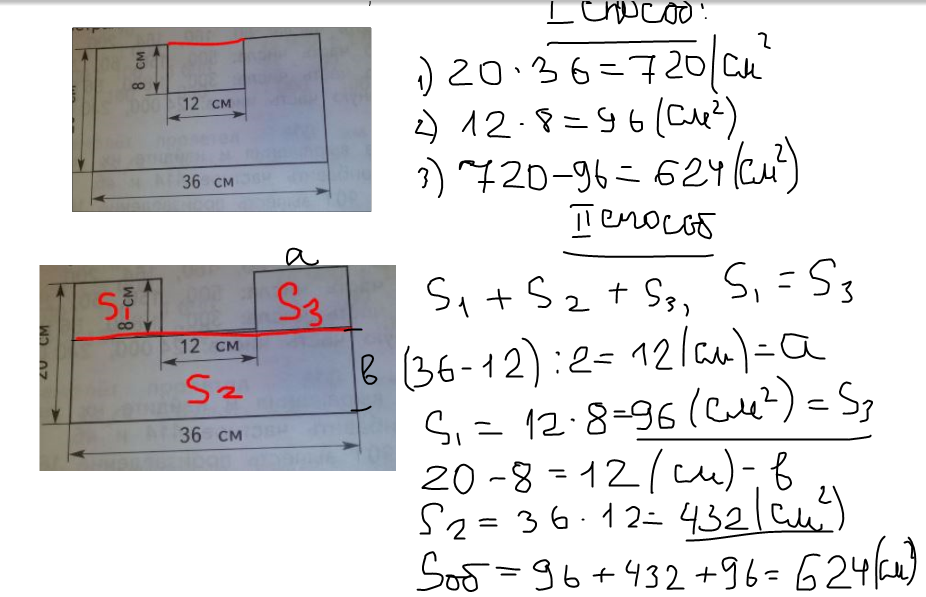 I способ:
8 см
12 см
36 см
1) 20 · 36 = 720 (см²
2) 12 · 8 = 96 (см²)
3) 720 - 96 = 624 (см²)
II способ
a
S1
8 см
S3
12 см
20 см
S2
в
36 см
S1 + S2 + S3, S1 = S3
(36 - 12) : 2 = 12 (см) = a
S1 = 12 · 8 = 96 (см²) = S3
20 - 8 = 12 (см) - в
S2 = 36 · 12 = 432 (см²)
Sоб = 96 + 432 + 96 = 624 (см²)